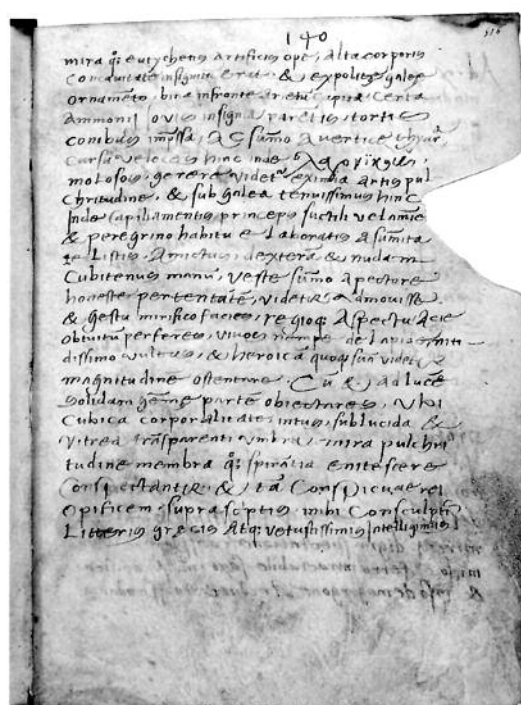 140
mira q; eutychetis artificis ope, alta corporis
concavitate insignita erat. & expolitae galeae
ornamento, bina in fronte arietum capita certa
Ammonii Iovis insignia parietis, tortis
cornibus impssa, Ac summo a vertice thyar
cursu veloces hinc inde
molosos, gerere videtur eximia artis pul
chritudine, & sub galea tenuissimus hinc
inde capillamentis princeps suctili velamine
& peregrino habitu elaboratis a sumita
te listis. Amictus, dexteram & nudam
Cubitenus manum, veste summo a pectore
honeste pertentatem, videtur admovisse.
& gestu mirifico facies, regioq; Aspectu Acie
obtuitum perferes, vivos nempe de lapide niti
dissimo vultus, & heroicam quoq; suam videtur
magnitudine ostentare. Cum & ad lucem
solidam gemme partem obiectares, Ubi
Cubica corporalitate intus, sublucida &
vitrea transparenti umbra, mira pulchri
tudine membra q; spirantia enitescere
Conspectantur. & tam Conspicuae rei
opificem, suprascriptis inibi Consculptis
Litteris grecis Atq; vetustissimis Intelligimus